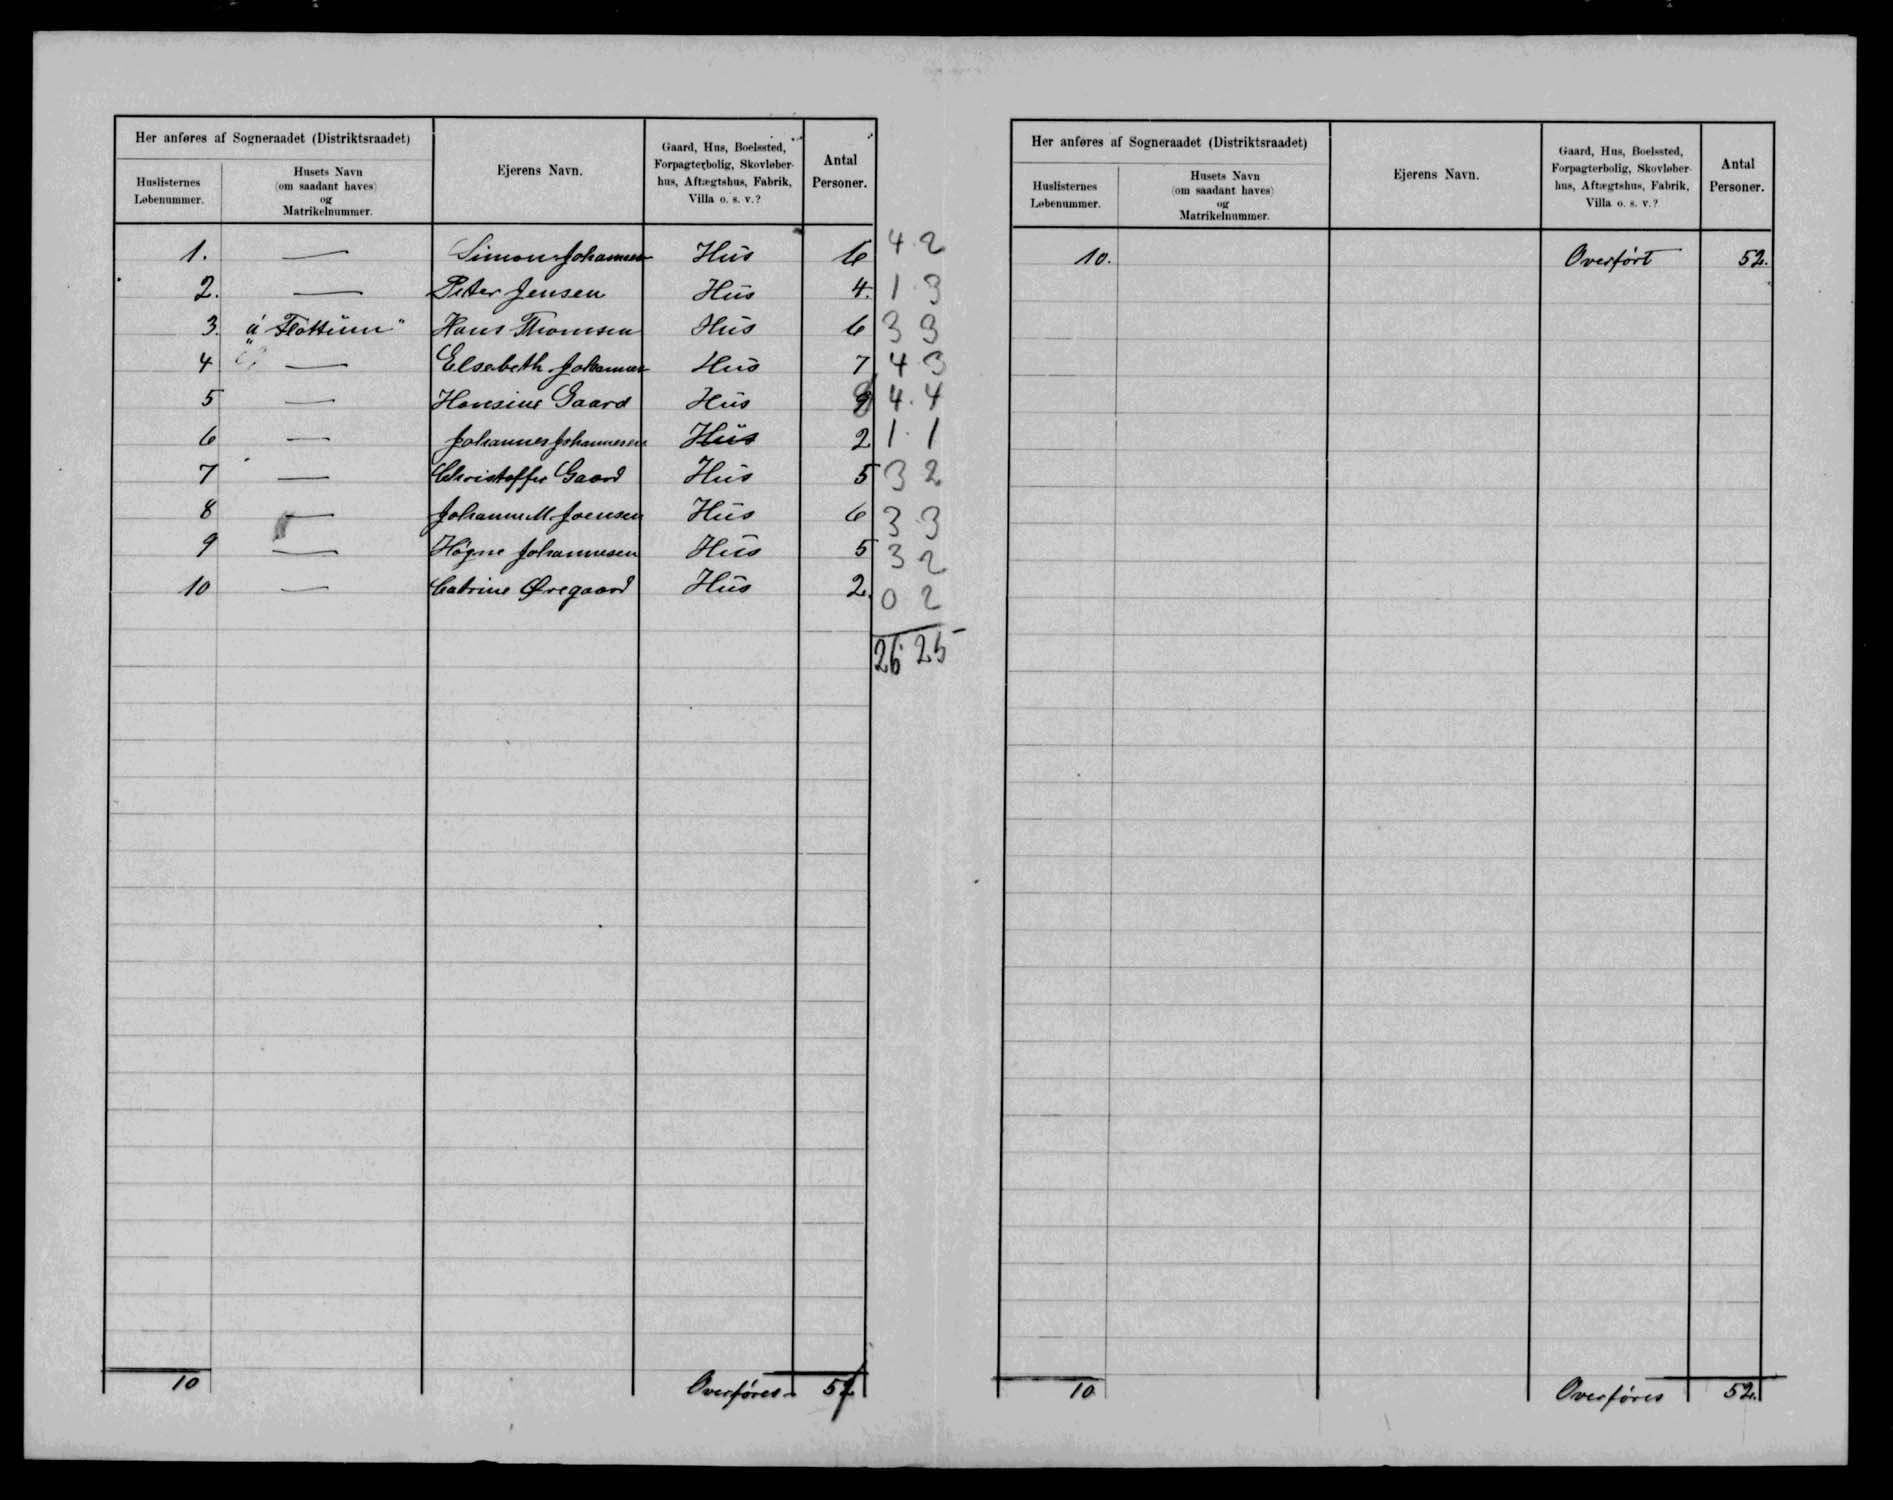 Her anføres af Sogneraadet (Distriktsraadet)
Huslisternes Løbenummer.
Husets Navn (om saadant haves) og Matrikelnummer.
Ejerens Navn.
Gaard, Hus, Boelssted, Forpagterbolig, Skovløberhus, Aftægtshus, Fabrik, Villa o. s. v.?
Antal Personer.
1. — Simon Johannesen Hus 6 4 2
2. — Peter Jensen Hus 4. 1 3
3. "á Fløttum" Hans Thomsen Hus 6 3 3
4 — Elsebeth Johannesen Hus 7 4 3
5 — Hansine Gaard Hus 4 4
6 — Johannes Johannesen Hus 2 1 1
7 — Christoffer Gaard Hus 5 3 2
8 — Johanne M. Joensen Hus 6 3 3
9 — Høgne Johannesen Hus 5 3 2
10 — Catrine Øregaard Hus 2. 0 2
26 25
10 Overføres 52
Her anføres af Sogneraadet (Distriktsraadet)
Huslisternes Løbenummer.
Husets Navn (om saadant haves) og Matrikelnummer.
Ejerens Navn.
Gaard, Hus, Boelssted, Forpagterbolig, Skovløberhus, Aftægtshus, Fabrik, Villa o. s. v.?
Antal Personer.
10. Overført 52.
10 Overføres 52.